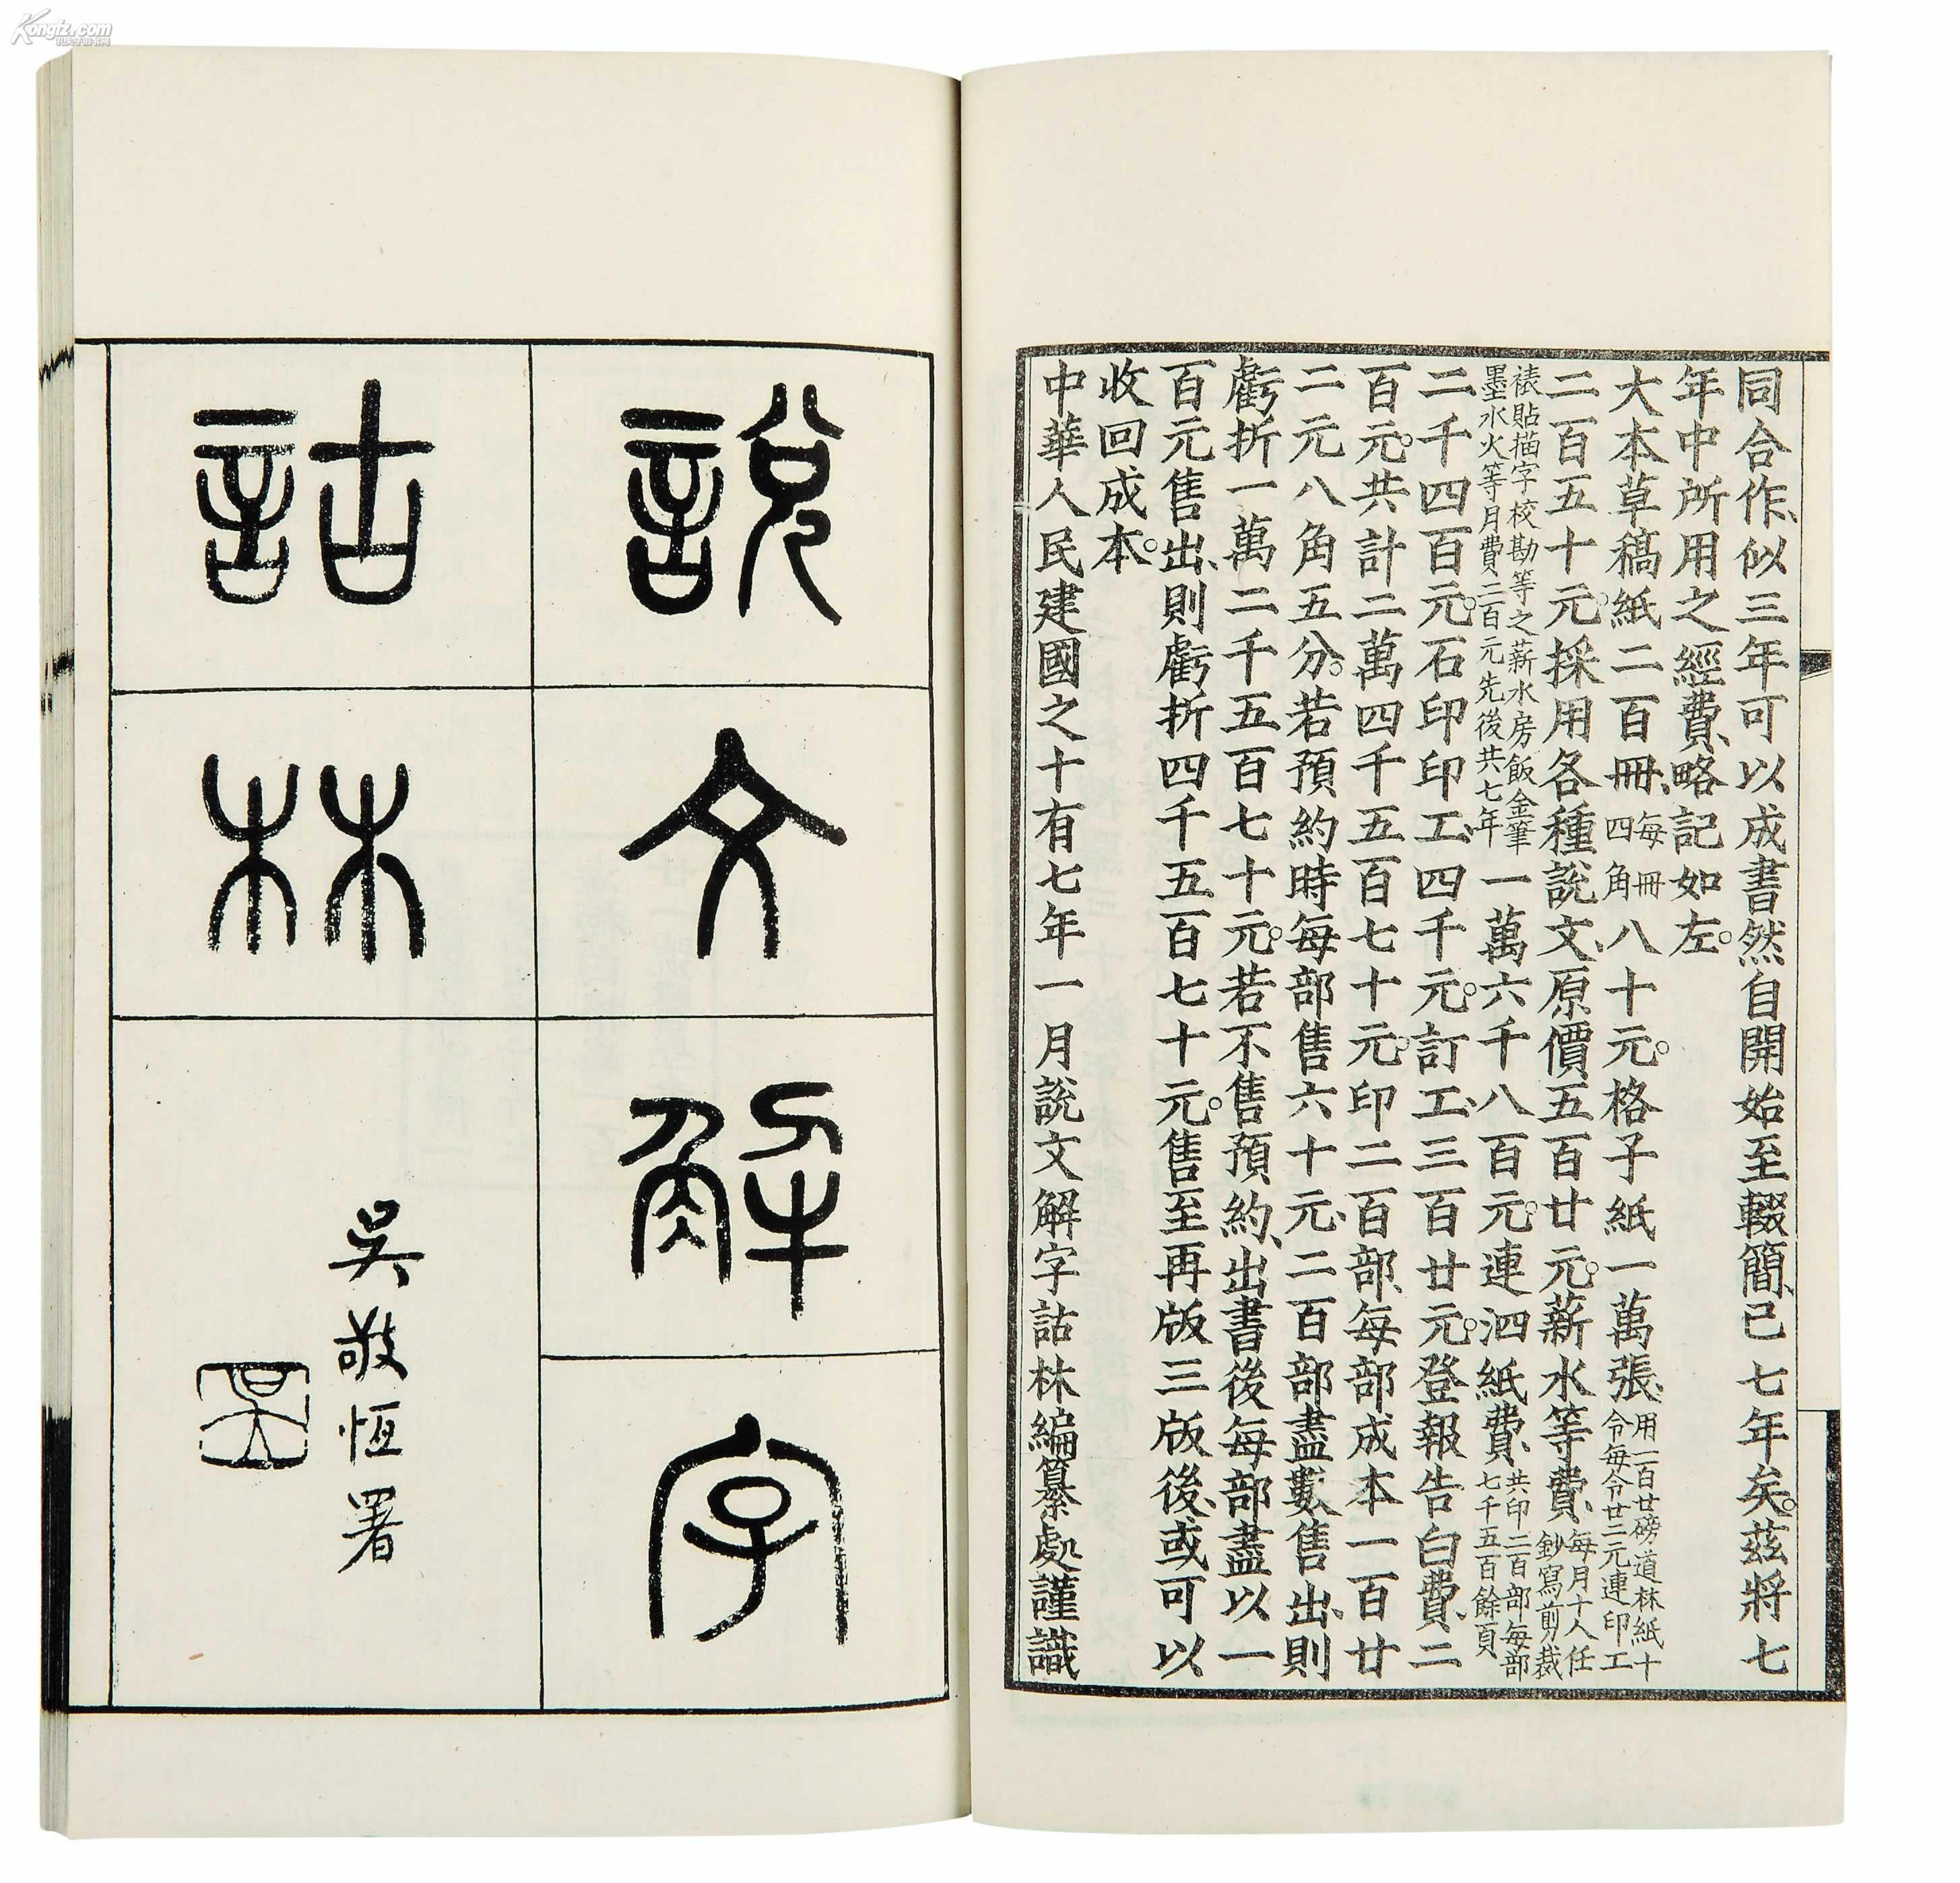 同合作、似三年可以成書然自開始至輟簡、已七年矣。茲將七
年中所用之經費、略記如左。
大本草稿紙二百冊、每冊四角八十元。格子紙一萬張、用一百廿磅道林紙十令每令廿二元連印工
二百五十元。採用各種說文、原價五百廿元。薪水等費、每月十人任鈔寫剪裁
裱貼描字校勘等之薪水房飯金筆墨水火等月費二百元先後共七年一萬六千八百元。連泗紙費、共印二百部每部七千五百餘頁
二千四百元。石印印工、四千元。訂工、三百廿元。登報告白費、二
百元。共計二萬四千五百七十元。印二百部、每部成本一百廿
二元八角五分。若預約時每部售六十元、二百部盡數售出、則
虧折一萬二千五百七十元。若不售預約、出書後每部盡以一
百元售出、則虧折四千五百七十元。售至再版三版後、或可以
收回成本。
中華人民建國之十有七年一月說文解字詁林編纂處謹識
說文解字
詁林
吳敬恆署
Kongfz.com
孔夫子旧书网